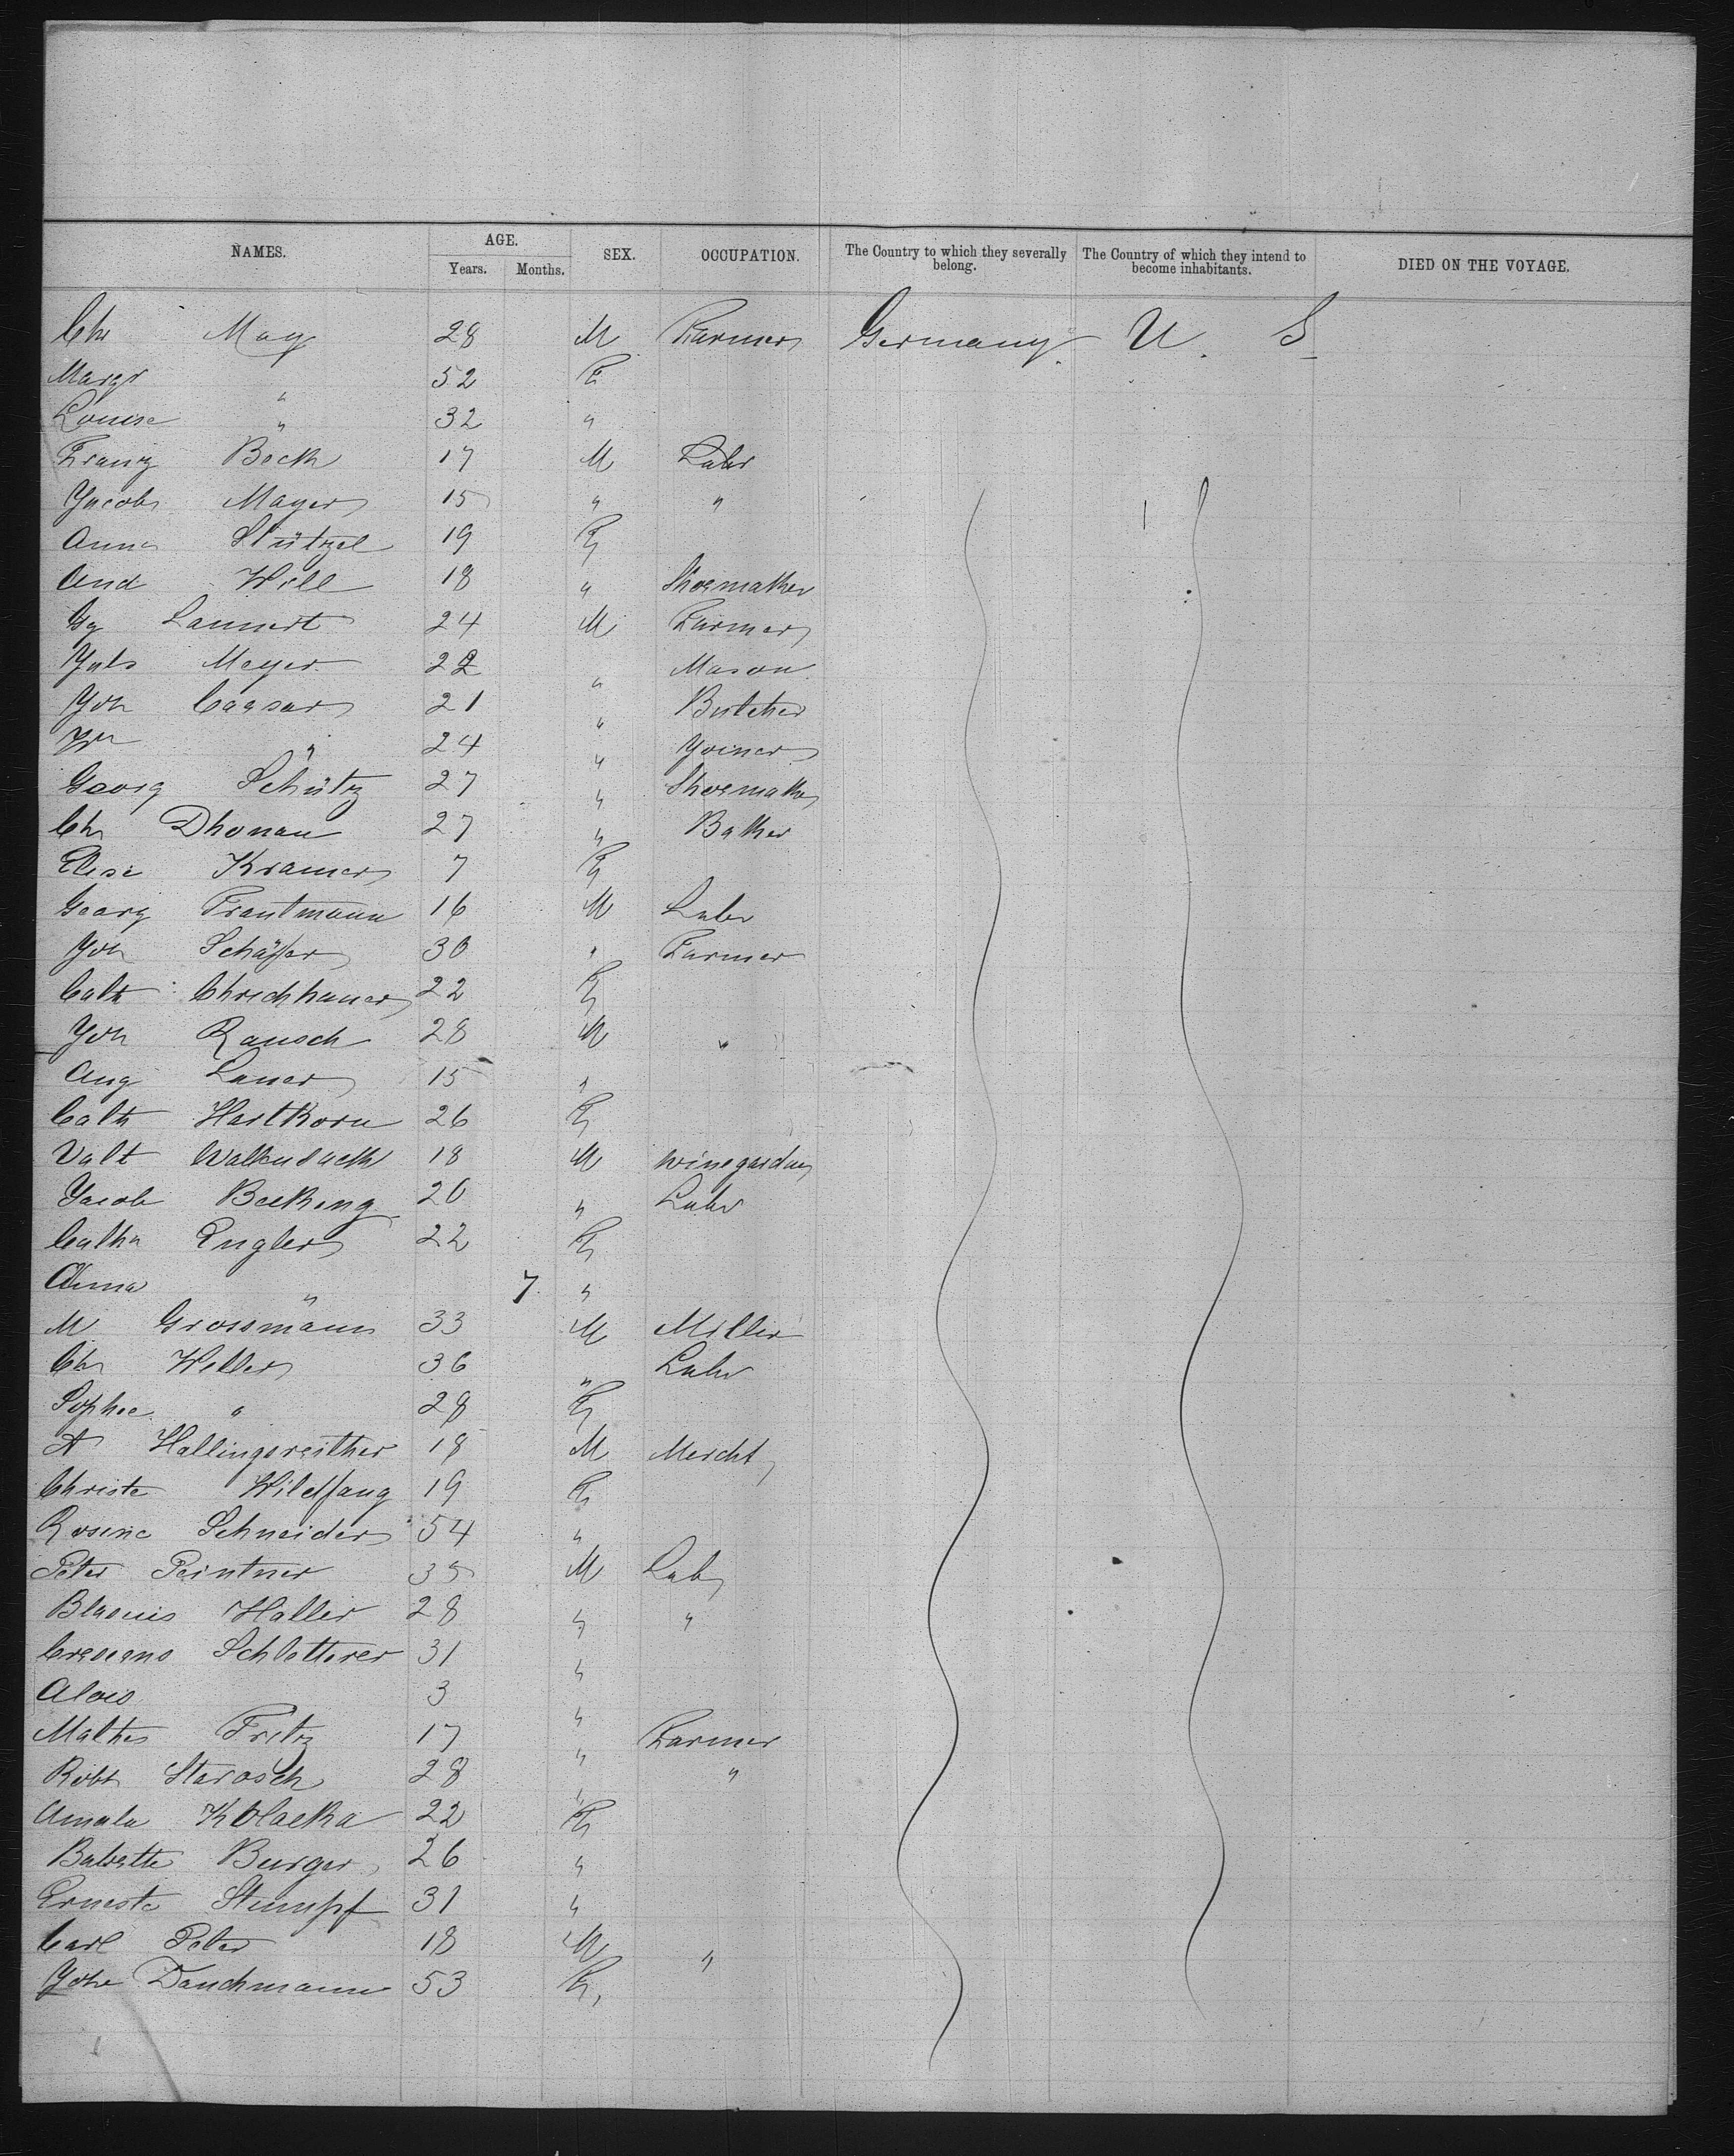 NAMES. AGE. SEX. OCCUPATION. The Country to which they severally belong. The Country of which they intend to become inhabitants. DIED ON THE VOYAGE.
Years. Months.
Chr May 28 M Farmer Germany U. S
Margr " 52 F
Louise " 32 "
Franz Beck 17 M Labr
Jacob Mayer 15 " "
Anna Stützel 19 F
And Will 18 " Shoemaker
Gg Lannert 24 M Farmer
Meyer 22 " Mason
Joh Caesar 21 " Butcher
" 24 " Joiner
Georg Schütz 27 " Shoemaker
Chr Dhonau 27 " Baker
Elise Kramer 7 F
Georg Trautmann 16 M Labr
Joh Schäfer 30 " Farmer
Cath 22 F
Joh Rausch 28 M "
Aug Lauer 15 "
Cath Hartkorn 26 F
Valt 18 M winegardner
Jacob Becking 20 " Labr
Catha Engler 22 F
Anna " 7 "
M Grossmann 33 M Miller
Chr Weller 36 " Labr
Sophie " 28 F
A Hallingsreither 18 M Mercht
Christe Wildfang 19 F
Rosine Schneider 54 "
Peter Peintner 35 M Lab
Haller 28 " "
Schlotterer 31 "
Alois 3 "
Mathes Fritz 17 " Farmer
Robt Starosch 28 " "
Amala 22 F
Babette Burger 26 "
Erneste Stumpf 31 "
Carl Peter 18 M "
Johe Dauchmann 53 F